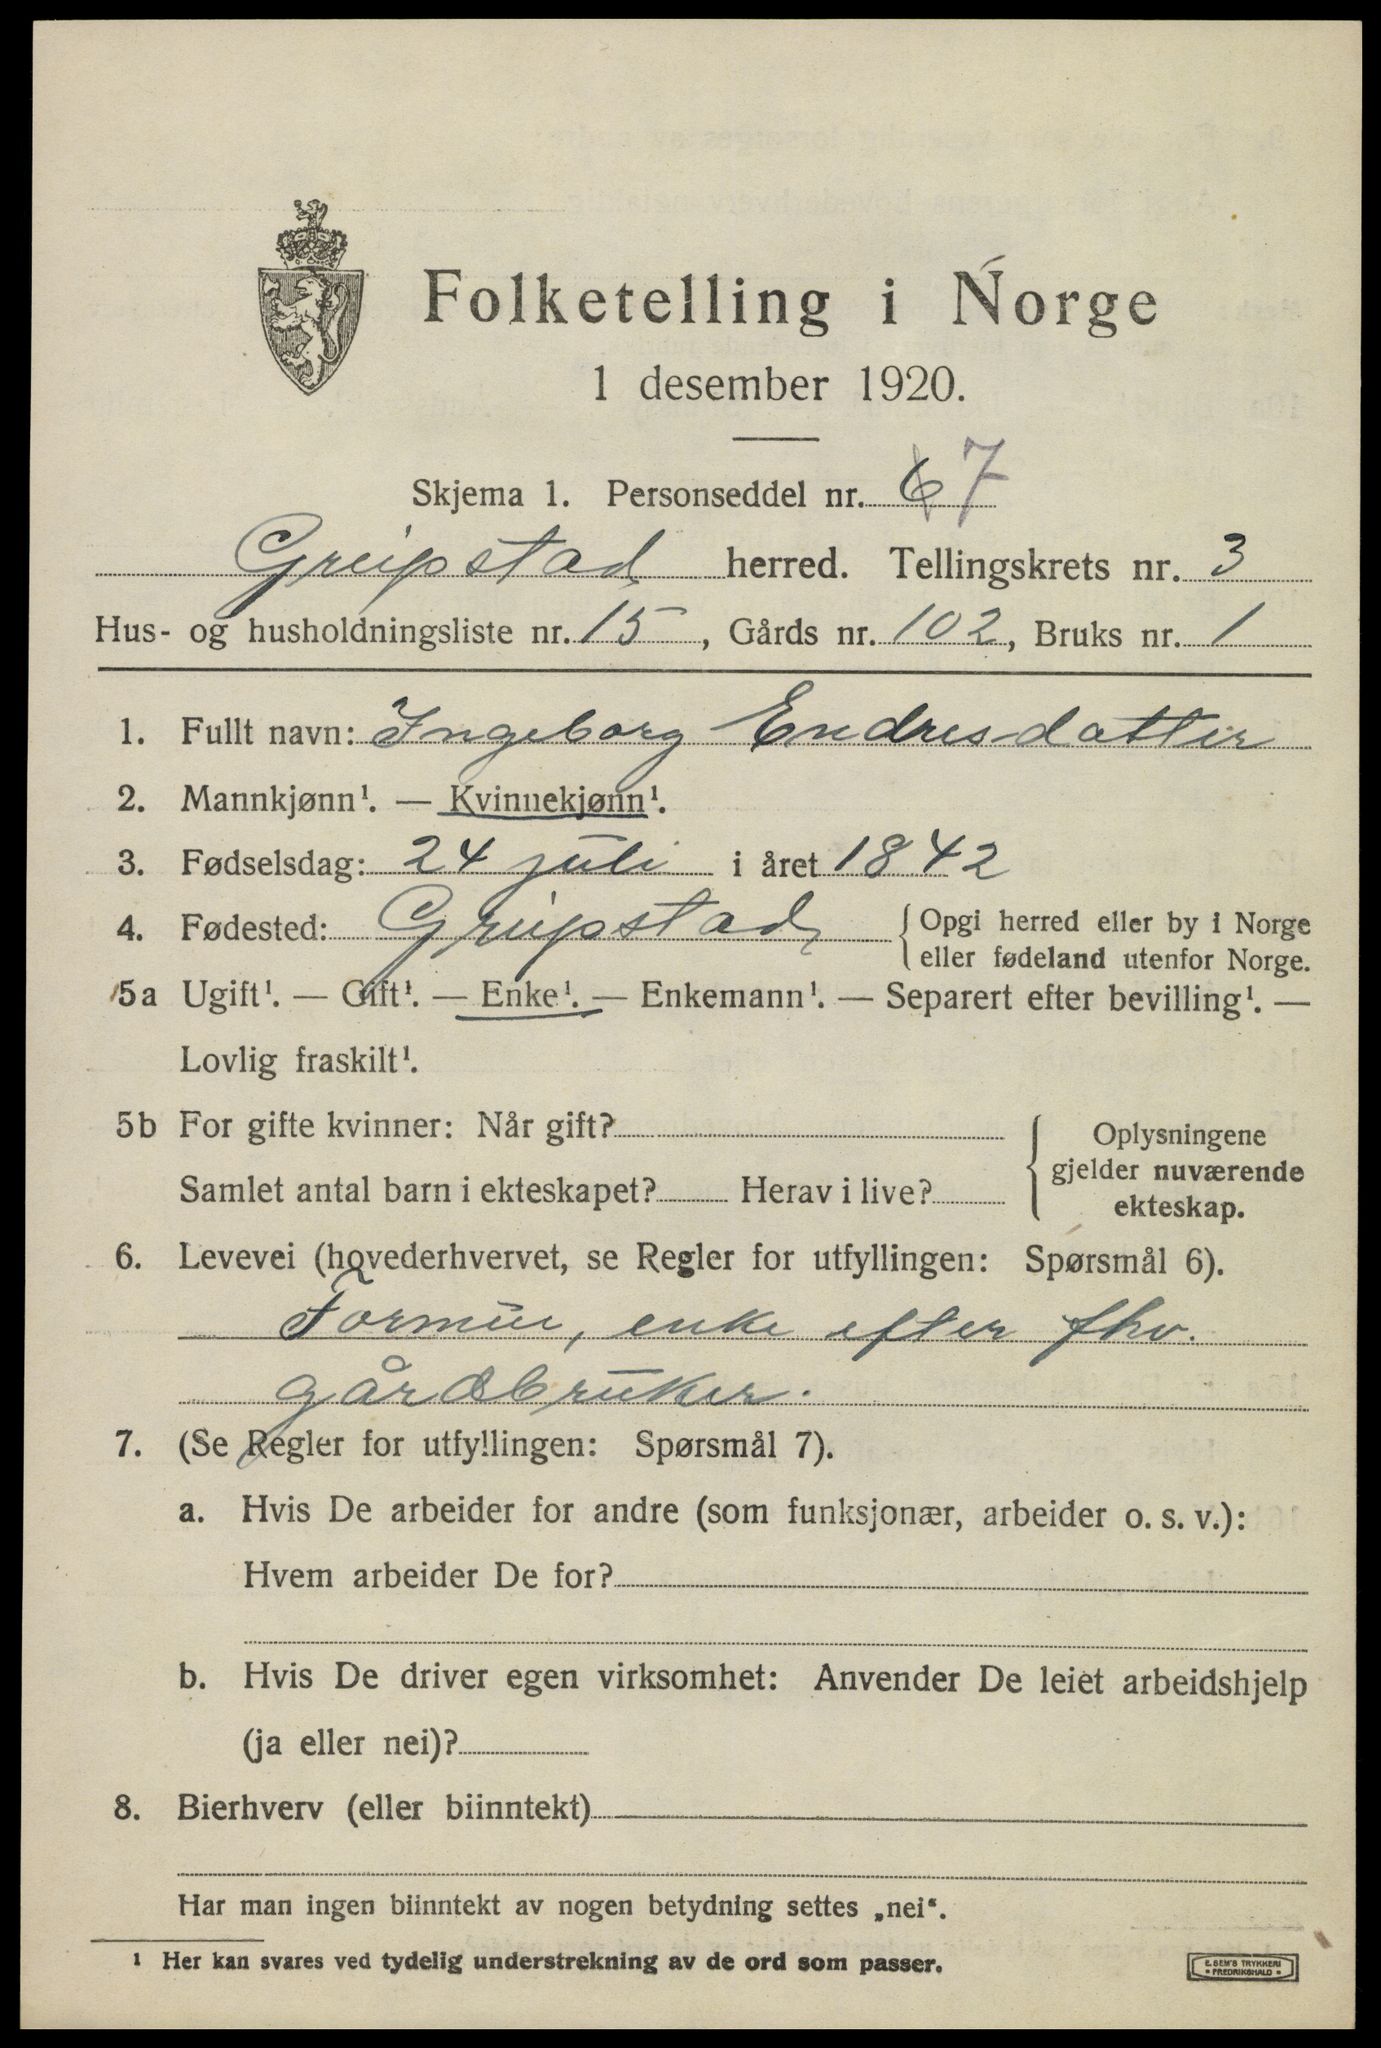 Folketelling i Norge
1 desember 1920.
Skjema 1. Personseddel nr. 6 7
Greipstad herred. Tellingskrets nr. 3
Hus- og husholdningsliste nr. 15, Gårds nr. 102, Bruks nr. 1
1. Fullt navn: Ingeborg Endresdatter
2. Mannkjønn¹. — Kvinnekjønn¹.
3. Fødselsdag: 24 juli i året 1842
4. Fødested: Greipstad { Opgi herred eller by i Norge
eller fødeland utenfor Norge.
5a Ugift¹. — Gift¹. — Enke¹. — Enkemann¹. — Separert efter bevilling¹. —
Lovlig fraskilt¹.
5b For gifte kvinner: Når gift?
Samlet antal barn i ekteskapet? Herav i live?
Oplysningene
gjelder nuværende
ekteskap.
6. Levevei (hovederhvervet, se Regler for utfyllingen: Spørsmål 6).
Formue, enke efter fhv.
gårdbruker.
7. (Se Regler for utfyllingen: Spørsmål 7).
a. Hvis De arbeider for andre (som funksjonær, arbeider o. s. v.):
Hvem arbeider De for?
b. Hvis De driver egen virksomhet: Anvender De leiet arbeidshjelp
(ja eller nei)?
8. Bierhverv (eller biinntekt)
Har man ingen biinntekt av nogen betydning settes „nei“.
¹ Her kan svares ved tydelig understrekning av de ord som passer.
E. SEM'S TRYKKERI
FREDRIKSHALD